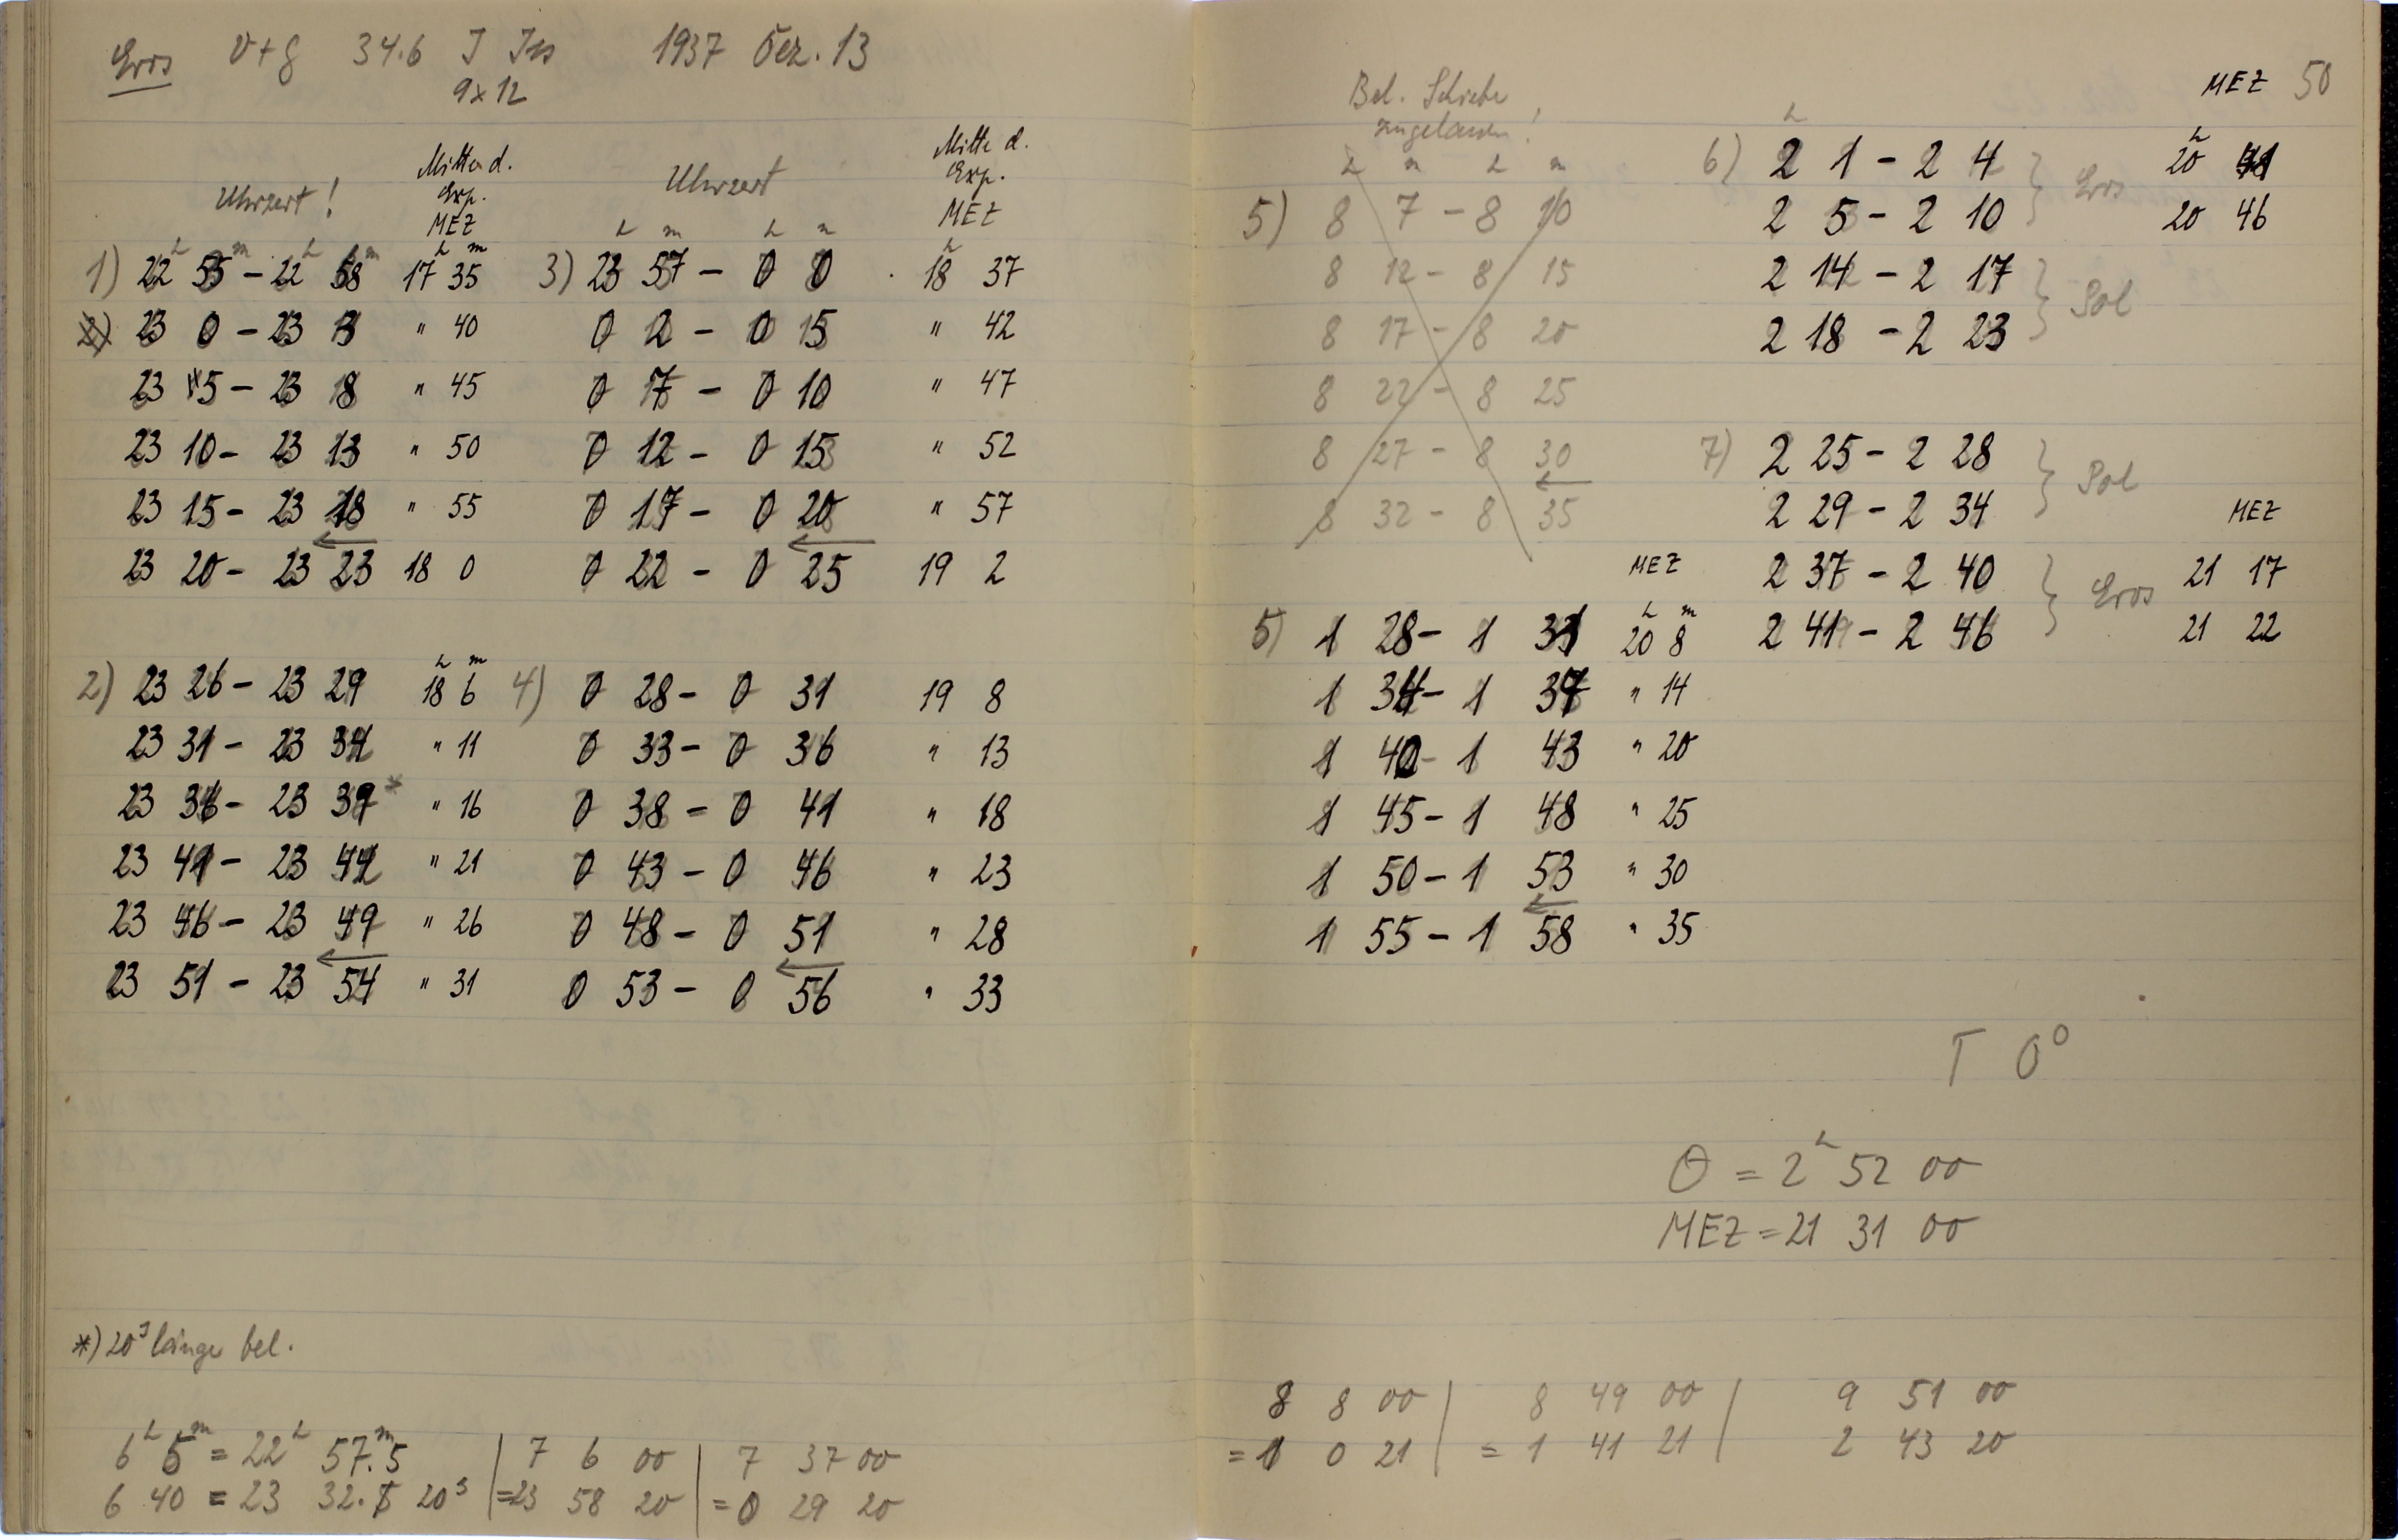 Eros V+G 34.6 J Iss 1937 Dez. 13
9x12
Uhrzeit!
Mitte d.
Exp.
MEZ
1) 22h 55m – 22h 58m 17h 35m
23 0 – 23 3 " 40
23 5 – 23 8 " 45
23 10 – 23 13 " 50
23 15 – 23 18 " 55
23 20 – 23 23 18 0
2) 23 26 – 23 29 18h 6m
23 31 – 23 34 " 11
23 36 – 23 39* " 16
23 41 – 23 44 " 21
23 46 – 23 49 " 26
23 51 – 23 54 " 31
Uhrzeit
Mitte d.
Exp.
MEZ
h m h m
3) 23 57 – 0 0 18h 37
0 2 – 0 5 " 42
0 7 – 0 10 " 47
0 12 – 0 15 " 52
0 17 – 0 20 " 57
0 22 – 0 25 19 2
4) 0 28 – 0 31 19 8
0 33 – 0 36 " 13
0 38 – 0 41 " 18
0 43 – 0 46 " 23
0 48 – 0 51 " 28
0 53 – 0 56 " 33
*) 20s länger bel.
6h 5m = 22h 57.m5 | 7 6 00 | 7 37 00
6 40 = 23 32. 20s | =23 58 20 | = 0 29 20
50
Bel.
zugelassen!
h m h m
5) 8 7 – 8 10
8 12 – 8 15
8 17 – 8 20
8 22 – 8 25
8 27 – 8 30
8 32 – 8 35
MEZ
5) 1 28 – 1 31 20h 8m
1 34 – 1 37 " 14
1 40 – 1 43 " 20
1 45 – 1 48 " 25
1 50 – 1 53 " 30
1 55 – 1 58 " 35
MEZ
h
6) 2 1 – 2 4 } Eros 20h 41
2 5 – 2 10 20 46
2 14 – 2 17 } Pol
2 18 – 2 23
7) 2 25 – 2 28 } Pol
2 29 – 2 34
MEZ
2 37 – 2 40 } Eros 21 17
2 41 – 2 46 21 22
T 0°
Θ = 2h 52 00
MEZ = 21 31 00
8 8 00 | 8 49 00 | 9 51 00
= 1 0 21 | = 1 41 21 | 2 43 20